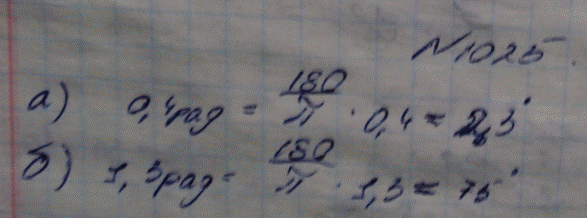 N1025.
а) 0,4рад = 180/π · 0,4 = 23°
б) 1,3рад = 180/π · 1,3 = 75°